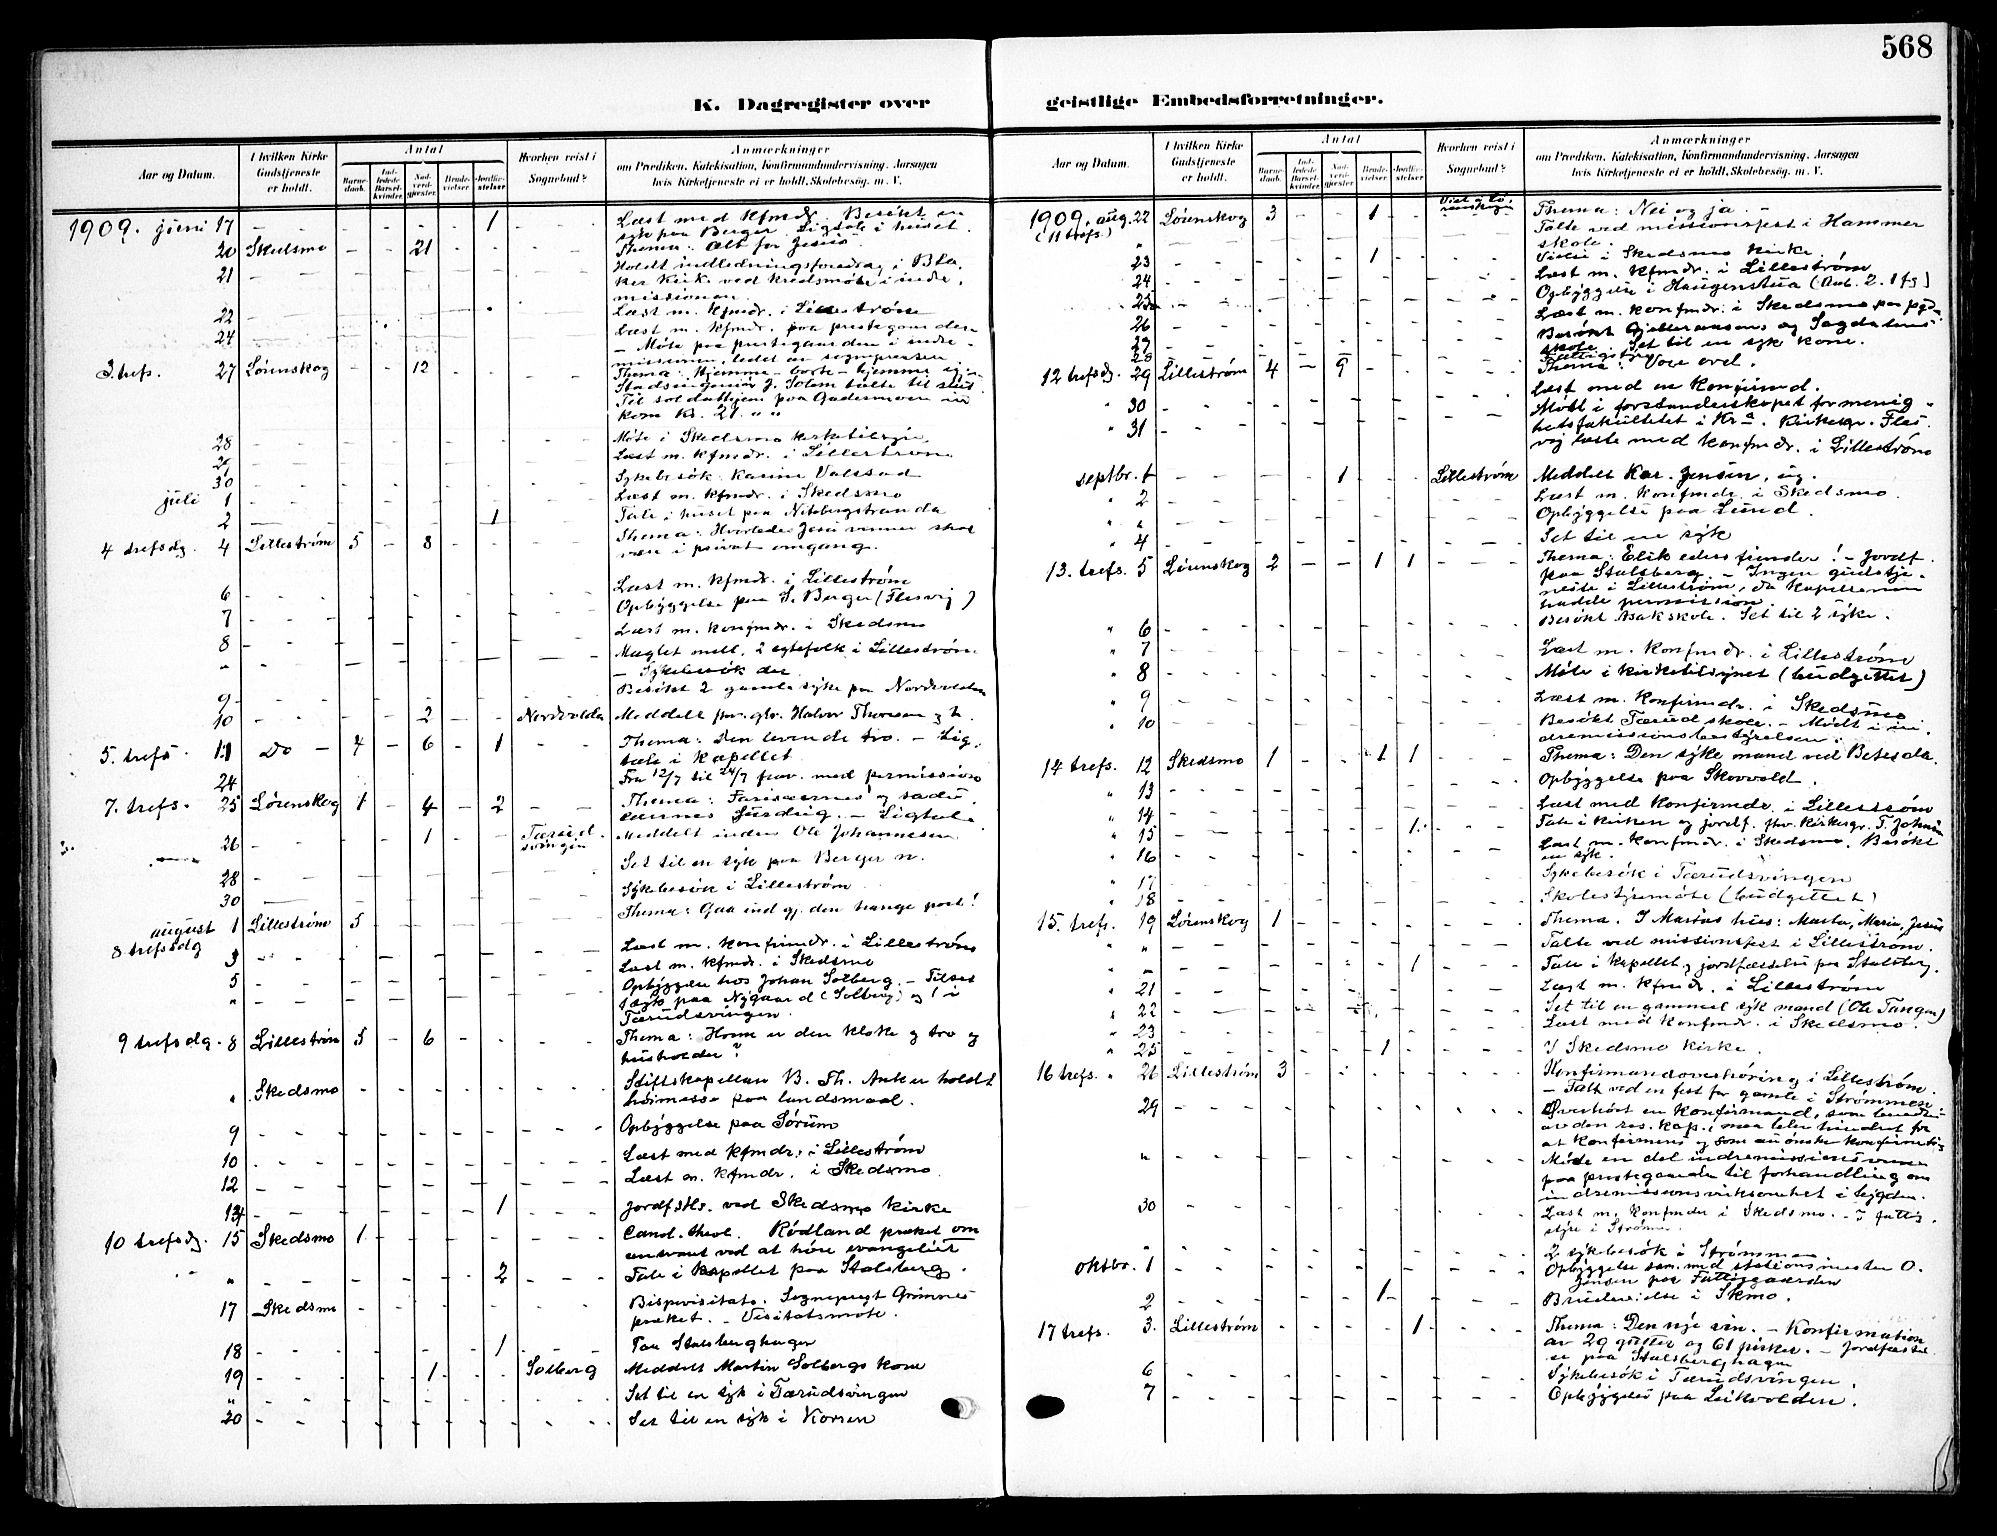 568
K. Dagregister over
geistlige Embedsforretninger.
Aar og Datum.
I hvilken Kirke Gudstjeneste er holdt.
Antal
Barne-daab.
Ind-ledede Barsel-kvinder.
Nad-verd-gjester.
Brude-vielser
Jordfæ-stelser
Hvorhen reist i Sognebud?
Anmærkninger
om Prædiken, Katekisation, Konfirmandundervisning, Aarsagen
hvis Kirketjeneste ei er holdt, Skolebesøg m. V.
1909. juni 17 - - - - 1 Læst med kfmdr. Besøkt en
syk paa Berger. Ligtale i huset.
20 Skedsmo - - 21 Thema: Alt for Jesus
21 Holdt indledningsforedrag i
Kirk. ved kredsmøte i indre
missionen.
22 Læst m. kfmdr. i Lillestrøm
24 Læst m. kfmdr. paa prestegaarden
- Møte paa prestegaarden i indre-
missionen, ledet av sognepresten
3. tref. 27 Lørenskog - - 12 Thema: Hjemme - borte - hjemme
Stadsingeniør J. Solem talte til slut
28 Møte i Skedsmo kirketilsyn
Læst m. kfmdr. i Lillestrøm
30 Sykebesøk: Karine Valstad
juli 1 Læst m. kfmdr. i Skedsmo
2 1 Tale i huset paa Nitebergstranda
4 trefsdg. 4 Lillestrøm 5 - 8 Thema: Hvorledes Jesu venner skal
være i privat omgang.
6 Læst m. kfmdr. i Lillestrøm
Opbyggelse paa S. Berger (Flesvig)
7 Læst m. konfmdr. i Skedsmo
8 Mæglet mell. 2 egtefolk i Lillestrøm
" - Sykebesøk der
9 Besøkt 2 gamle syke paa Nordvolden
10 - - 2 - - Nordvolda Meddelt
5. trefs. 11 Do - 4 - 6 - 1 Thema: Den levende tro. - Lig-
tale i kapellet
24 Fra 12/7 til 24/7 frav. med permission
7. trefs. 25 Lørenskog 1 - 4 - 2 Thema: Farisæernes og saddu-
cæernes surdeig. - Ligtale
26 1 Tærud-
svingen Meddelt inders. Ole Johannesen
Set til en syk paa Berger n.
28 Sykebesøk i Lillestrøm
30
august 1 Lillestrøm 5 Thema: Gaa ind gj. den trange port!
8 trefsdg
3 Læst m. konfirmdr. i Lillestrøm
5 Læst m. kfmdr. i Skedsmo
" Opbyggelse hos Johan Solberg. - Tilset
1 syk paa Nygaard (Solberg) og 1 i
Tærudsvingen.
9 trefsdg. 8 Lillestrøm 5 - 6 Thema: Hvem er den kloke og tro
husholder?
" Skedsmo Stiftskapellan B. Th. Anker holdt
høimesse paa landsmaal.
9 Opbyggelse paa Sørum
10 Læst med kfmdr. i Lillestrøm
12 Læst m. kfmdr. i Skedsmo
14 1 Jordfstls. ved Skedsmo kirke
10 trefsdg. 15 Skedsmo 1 Cand. theol. Rødland præket om
ansvaret ved at høre evangeliet
" 2 Tale i kapellet paa Stalsberg.
17 Skedsmo Bispevisitats. Sogneprest Grimnes
præket. - Visitatsmøte.
18 1 Paa Stalsberghagen
19 1 Solberg Meddelt Martin Solbergs kone
" Set til en syk i Tærudsvingen
20 Set til en syk i Korsen
1909. aug. 22 Lørenskog 3 - - 1 Thema: Nei og ja. -
(11 trefs.) Talte ved missionsfest i Hammer
skole.
23 1 Vielse i Skedsmo kirke
24 Læst m. kfmdr. i Lillestrøm
25 Opbyggelse i Haugenstua
26 Læst m. konfmdr. i Skedsmo
27 Besøkt Gjelleraasen og Sagdalens
28 skole. Set til en syk kone.
12 trefsdg. 29 Lillestrøm 4 - 9 Thema: Vore ord.
30 Læst med en konfirmd.
" 31 Møtt i forstanderskapet for menig-
hetsfakultetet i Kra. Kirkesgr. Fles-
vig læste med konfmdr. i Lillestrøm
septbr. 1 1 Lillestrøm Meddelt Kar. Jensen, ug.
" 2 Læst m. konfmdr. i Skedsmo.
" " Opbyggelse paa Lund.
" 4 Set til en syk
13. trefs. 5 Lørenskog 2 - - 1 1 Thema: Elsk eders fiender! - Jordf.
paa Stalsberg. - Ingen gudstje-
neste i Lillestrøm, da kapellanen
hadde permission
" 6 Besøkt Asakskole. Set til 2 syke.
" 7 Læst m. konfmdr. i Lillestrøm
" 8 Møte i kirketilsynet (budgettet)
" 9 Læst m. konfirmdr. i Skedsmo
" 10 Besøkt Tærud skole. - Møtt i in-
dremissionsbestyrelsen.
14 trefs. 12 Skedsmo 1 - - 1 1 Thema: Den syke mand ved Betesda.
" 13 Opbyggelse paa Skovvold.
" 14 Læst med konfirmdr. i Lillestrøm
" 15 1 Tale i kirken og jordf.
" 16 Læst m. konfmdr. i Skedsmo. Besøkt
en syk.
" 17 Sykebesøk i Tærudsvingen
" 18 Skolestyremøte (budgettet)
15. trefs. 19 Lørenskog 1 Thema. I Martas hus: Marta, Maria, Jesus
" " Talte ved missionsfest i Lillestrøm.
" - 1 Tale i kapellet og jordfæstelse paa Stalsberg.
" 21 Læst m. kfmdr. i Lillestrøm
" 22 Set til en gammel syk mand (Ole Tangen)
" 23 Læst med konfmdr. i Skedsmo.
" 25 1 I Skedsmo kirke.
16 trefs. " 26 Lillestrøm 3 Konfirmandoverhøring i Lillestrøm.
- Talt ved en fest for gamle i Strømmen
29 Overhørt en konfirmand, som
av den res. kap. maa blev hindret for
at konfirmeres og som
" Møte en del indremissionsvenner
paa prestegaarden til forhandling om
indremissionsvirksomhet i bygden.
30 Læst m. konfmdr i Skedsmo. - I fattig-
styre i Strømm.
" 2 sykebesøk i Strømmen
oktbr. 1 Opbyggelse sam. med stationsmester O.
Jensen paa Fattiggaarden
2 1 Brudevielse i Skmo.
17 trefs. 3. Lillestrøm 1 Thema: Den nye vin. - Konfirmation
av 29 gutter og 61 piker. - Jordfæstel-
se paa Stalsberghagen
6 Sykebesøk i Tærudsvingen.
7 Opbyggelse paa Leikvolden.